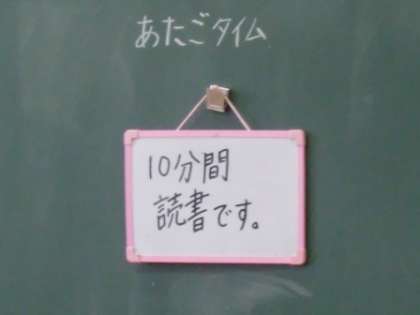 あたごタイム
10分間
読書です。